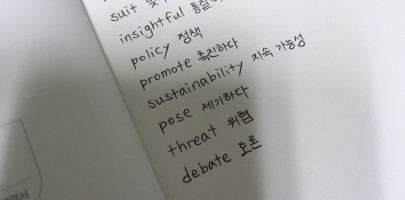 suit
insightful 통찰
policy 정책
promote 촉진하다
sustainability 지속 가능성
pose 제기하다
threat 위협
debate 토론